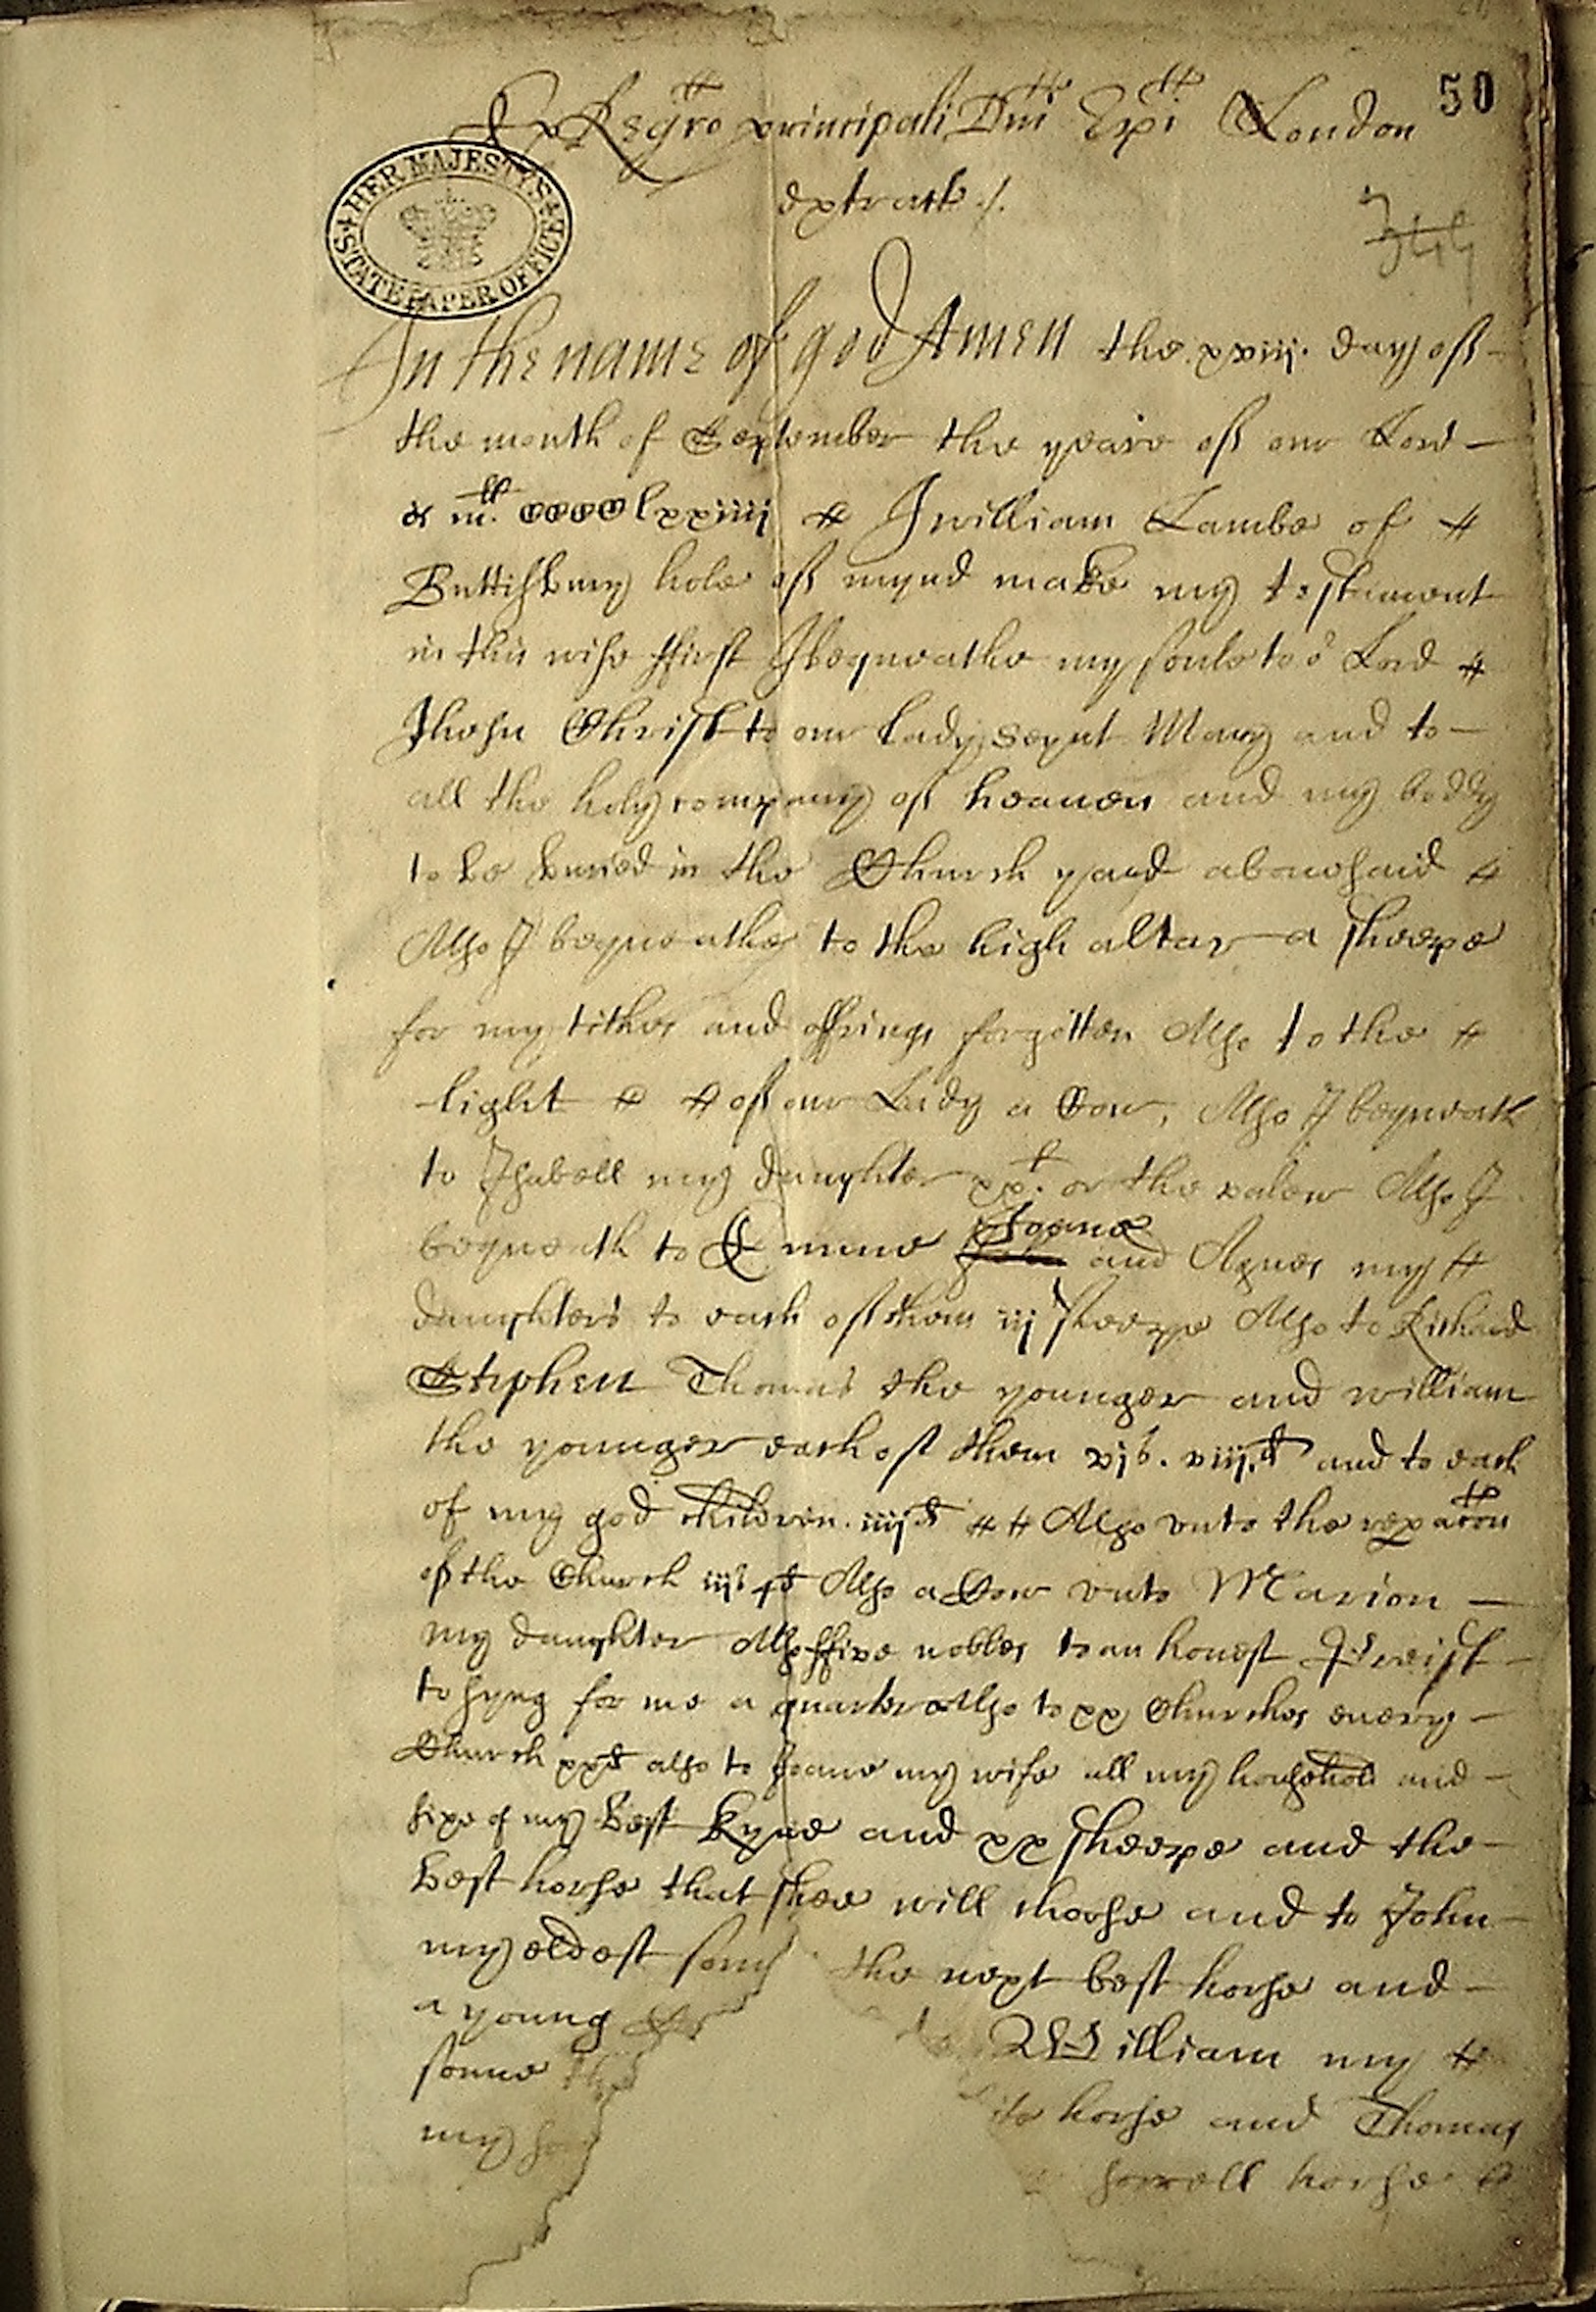 50
Ex Regro principali Dni Epi London
extract ./.
HER MAJESTY'S STATE PAPER OFFICE
In the name of god Amen the xxiii. day of
the month of September the yeare of our Lord
mll. CCCClxxiiii I william Lambe of
hole of mynd make my testament
in this wise ffirst I bequeathe my soule to or Lord
Jhesu Christ to our Lady Seynt Mary and to
all the holy company of heauen and my boddy
to be buried in the Church yard abouesaid
Also I bequeathe to the high altar a sheepe
for my tithes and offrings forgotten Also to the
light of our Lady a Cow, Also I bequeath
to Isabell my daughter xxs. or the valew Also I
bequeath to Emme Joane and Agnes my
daughters to each of them iij sheepe Also to Richard
Stephen Thomas the younger and william
the younger each of them vjs. viij.d and to each
of my god children. iiijd Also vnto the repacon
of the Church iijs 4d Also a Cow vnto Marion
my daughter Also ffive nobles to an honest Preist
to syng for me a quarter Also to xx Churches euery
Church xxd also to Joane my wife all my houshold and
sixe of my best kyne and xx sheepe and the
best horse that shee will choose and to John
my eldest sonne the next best horse and
a young
sonne William my
my horse and Thomas
sorrell horse